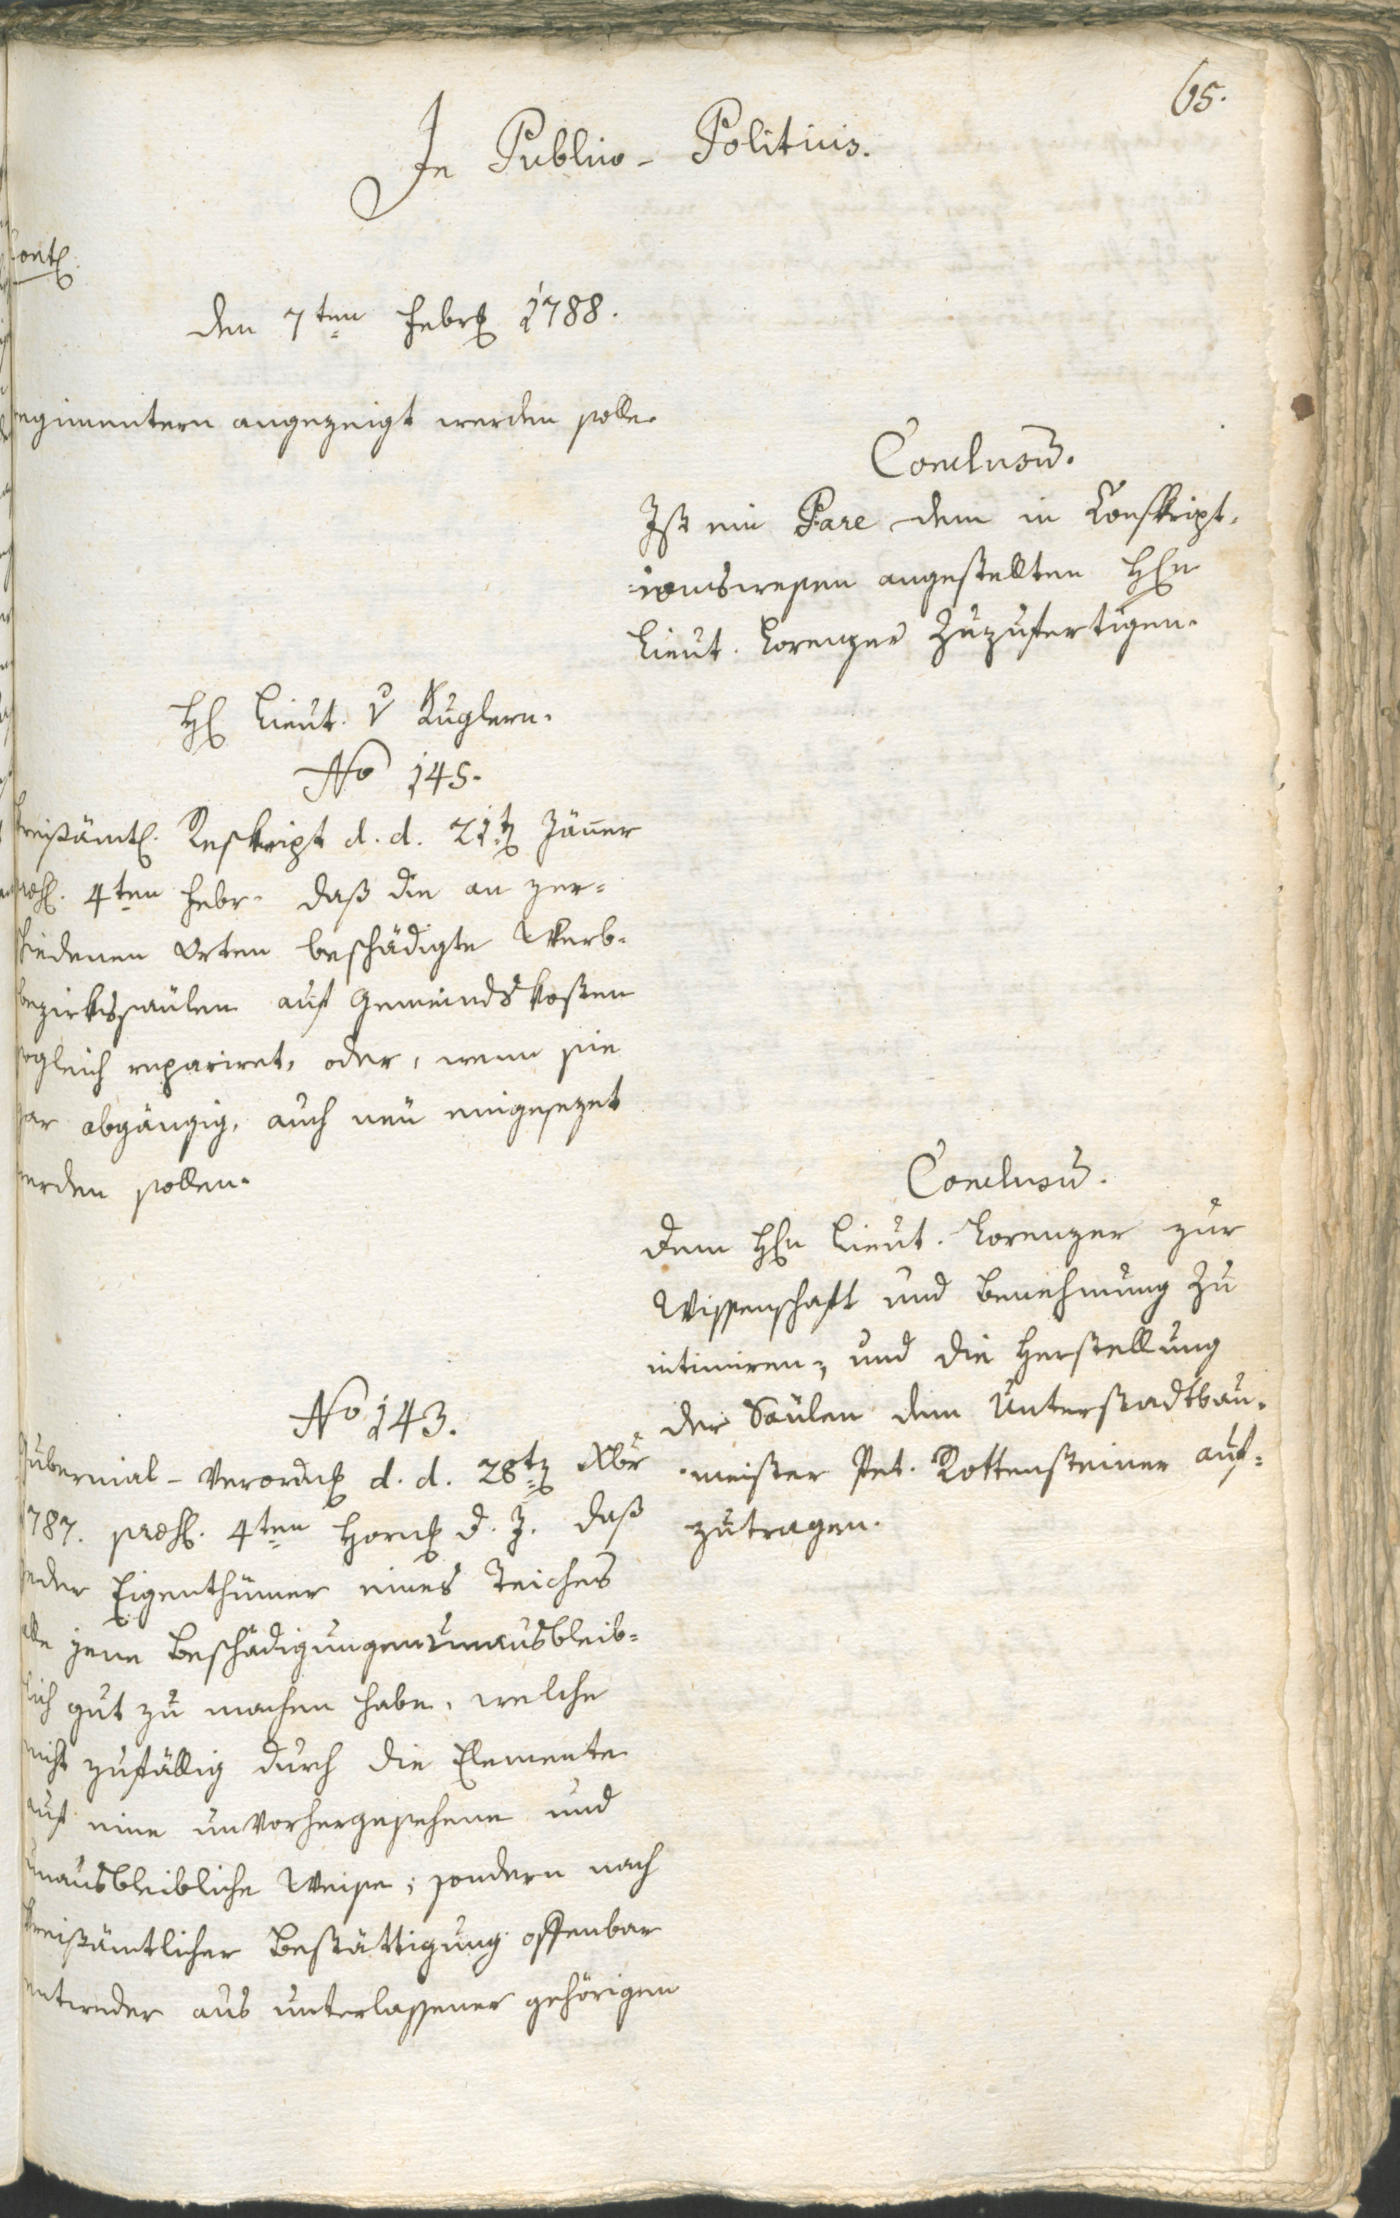 65.
In Publico- Politicis.
Cont.
den 7ten Febr. 1788.
Regimentern angezeigt werden solle.
Conclusum.
Ist ein Pare dem in Conskript-
ionswesen angestellten Hhn
Lieut. Lorenzer zuzufertigen.
H. Lieut. v Kuglern.
No 145.
Kreißämtl. Reskript d. d. 21t. Jänner
praes. 4ten Febr. daß die an ver-
schiedenen Orten beschädigte Werb-
bezirkssäulen auf Gemeindskosten
sogleich repariret, oder, wenn sie
gar abgängig, auch neu eingesezet
werden sollen.
Conclusum.
Dem Hhn Lieut. Lorenzer zur
Wissenschaft und Benehmung zu
intimiren, und die Herstellung
der Säulen dem Unterstadtbau-
meister Pet. Rottensteiner auf-
zutragen.
No 143.
Gubernial-Verordn. d. d. 28t. Xbr
1787. praes. 4ten Horn. d. J. daß
jeder Eigenthümer eines Teiches
alle jene Beschädigungen unausbleib-
lich gut zu machen habe, welche
nicht zufällig durch die Elemente
auf eine unvorhergesehene und
unausbleibliche Weise; sondern nach
kreißämtlicher Bestättigung offenbar
entweder aus unterlassener gehörigen